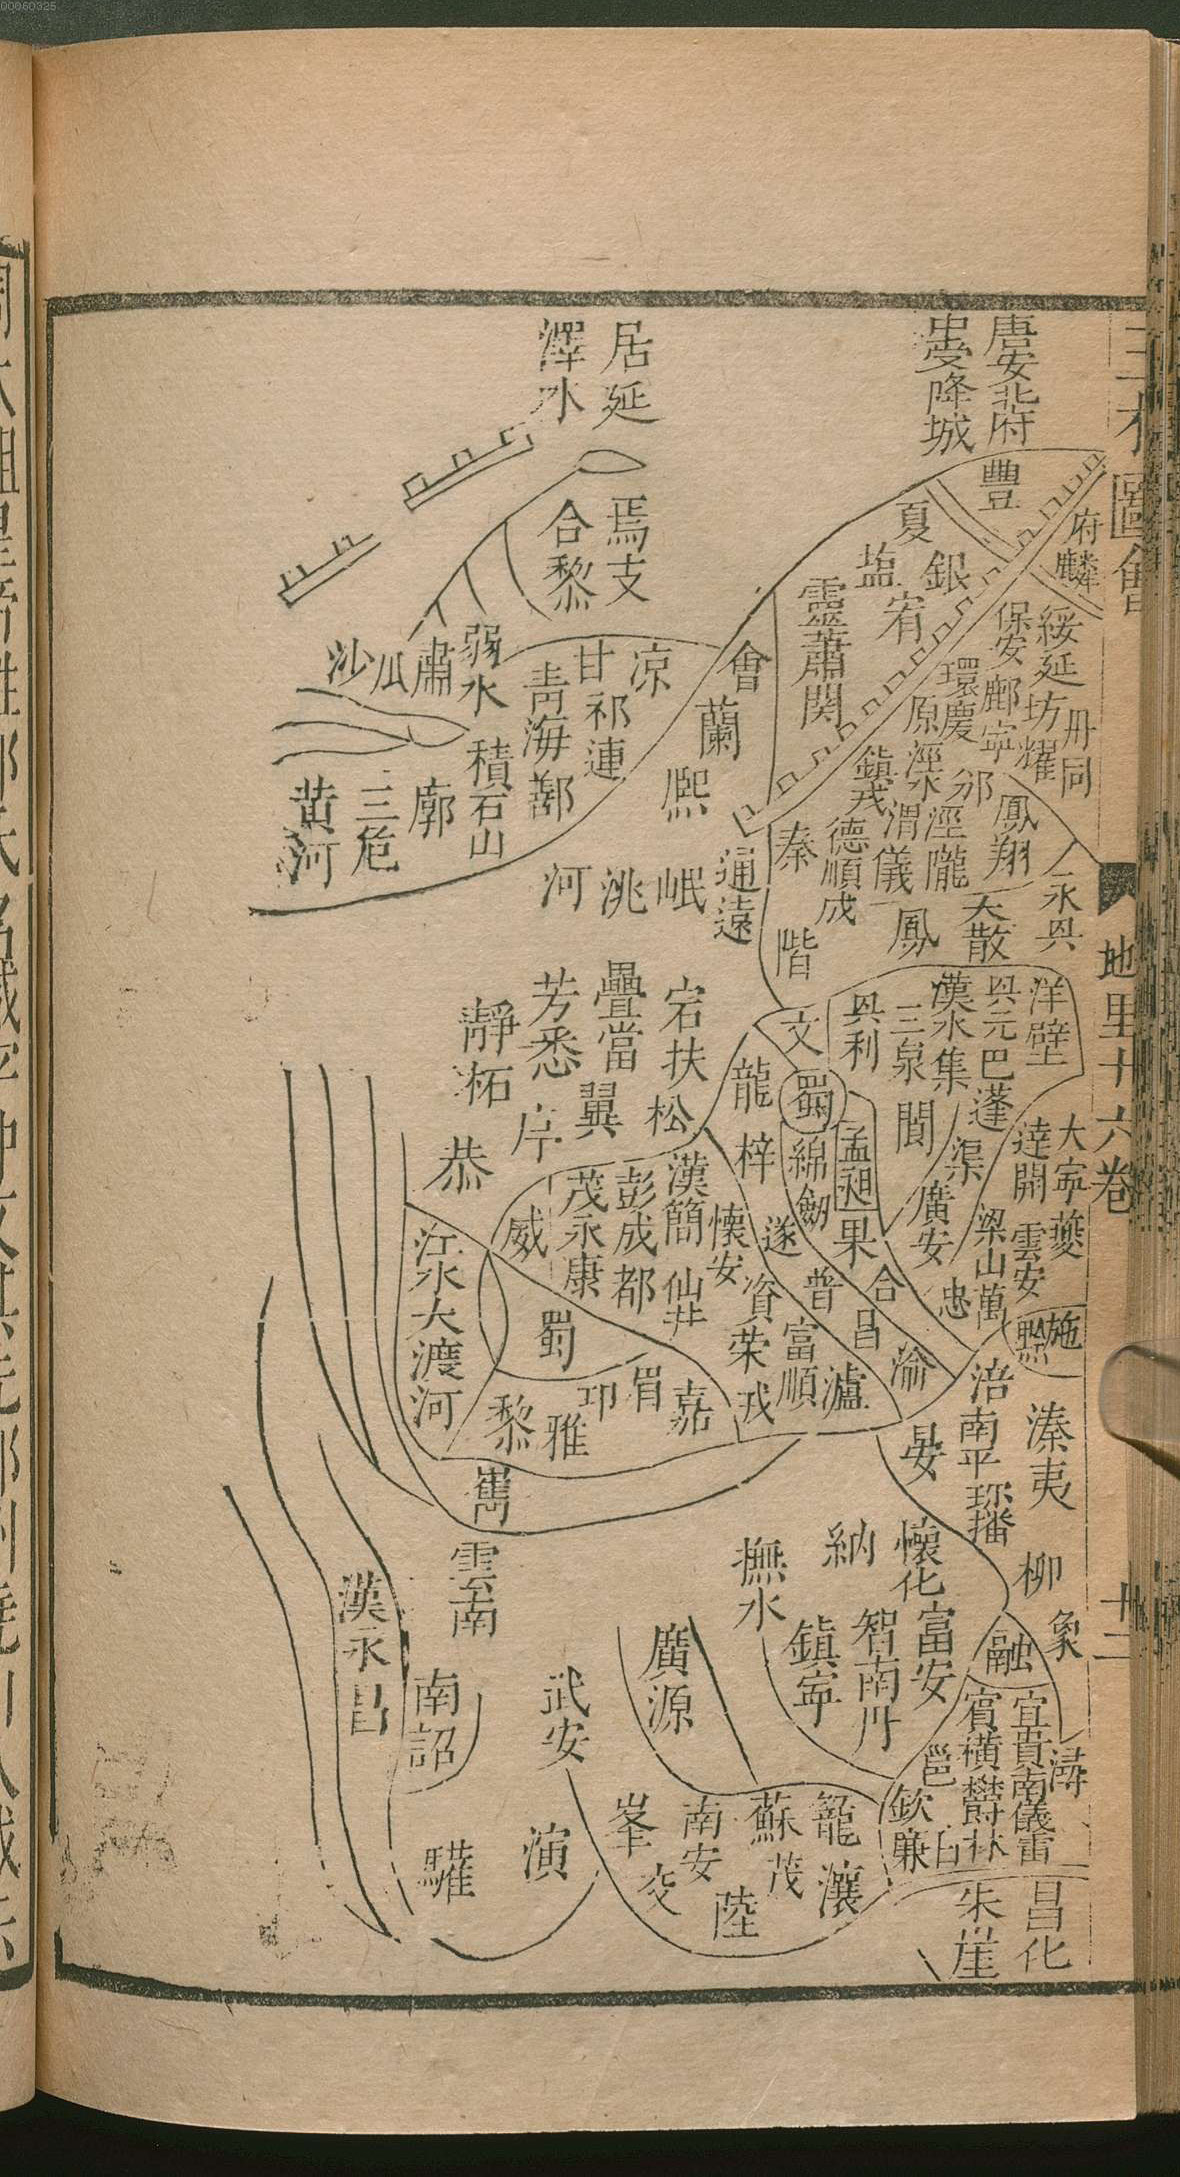 00060325
三才圖會
地里十六卷
十二
唐安北府
中受降城
居延
澤水
豐
府
麟
夏
銀
塩
宥
靈
蕭関
綏延
保安
鄜
坊
丹同
耀
環慶
寧
原
涇水
邠
鎮戎
渭
涇
德順
儀
隴
鳳翔
永興
大散
鳳
秦
成
階
會
蘭
熙
通遠
岷
洮
河
焉支
合黎
涼
甘
祁連
青海
鄯
弱水
肅
瓜
沙
積石山
廓
三危
黄河
洋壁
興元
巴
蓬
漢水
集
三泉
興利
文
蜀
龍
閬
渠
孟昶
綿
劒
梓
果
廣安
達
開
大寧
夔
雲安
梁山
萬
忠
施
黔
宕
扶
松
疊
當
翼
芳
悉
静
柘
恭
漢
簡
彭
成都
茂
永康
威
懐安
仙井
遂
資
普
合
昌
榮
富順
瀘
渝
戎
蜀
嘉
眉
邛
雅
黎
江水
大渡河
巂
涪
南平
溱
夷
播
晏
納
懐化
撫水
富安
智
南丹
鎮寧
柳
象
融
宜
貴
賓
横
南儀
雷
欝林
潯
邕
欽
廉
白
昌化
朱崖
雲南
漢永昌
南詔
武安
廣源
籠
蘇茂
瀼
南安
峯
交
陸
演
驩